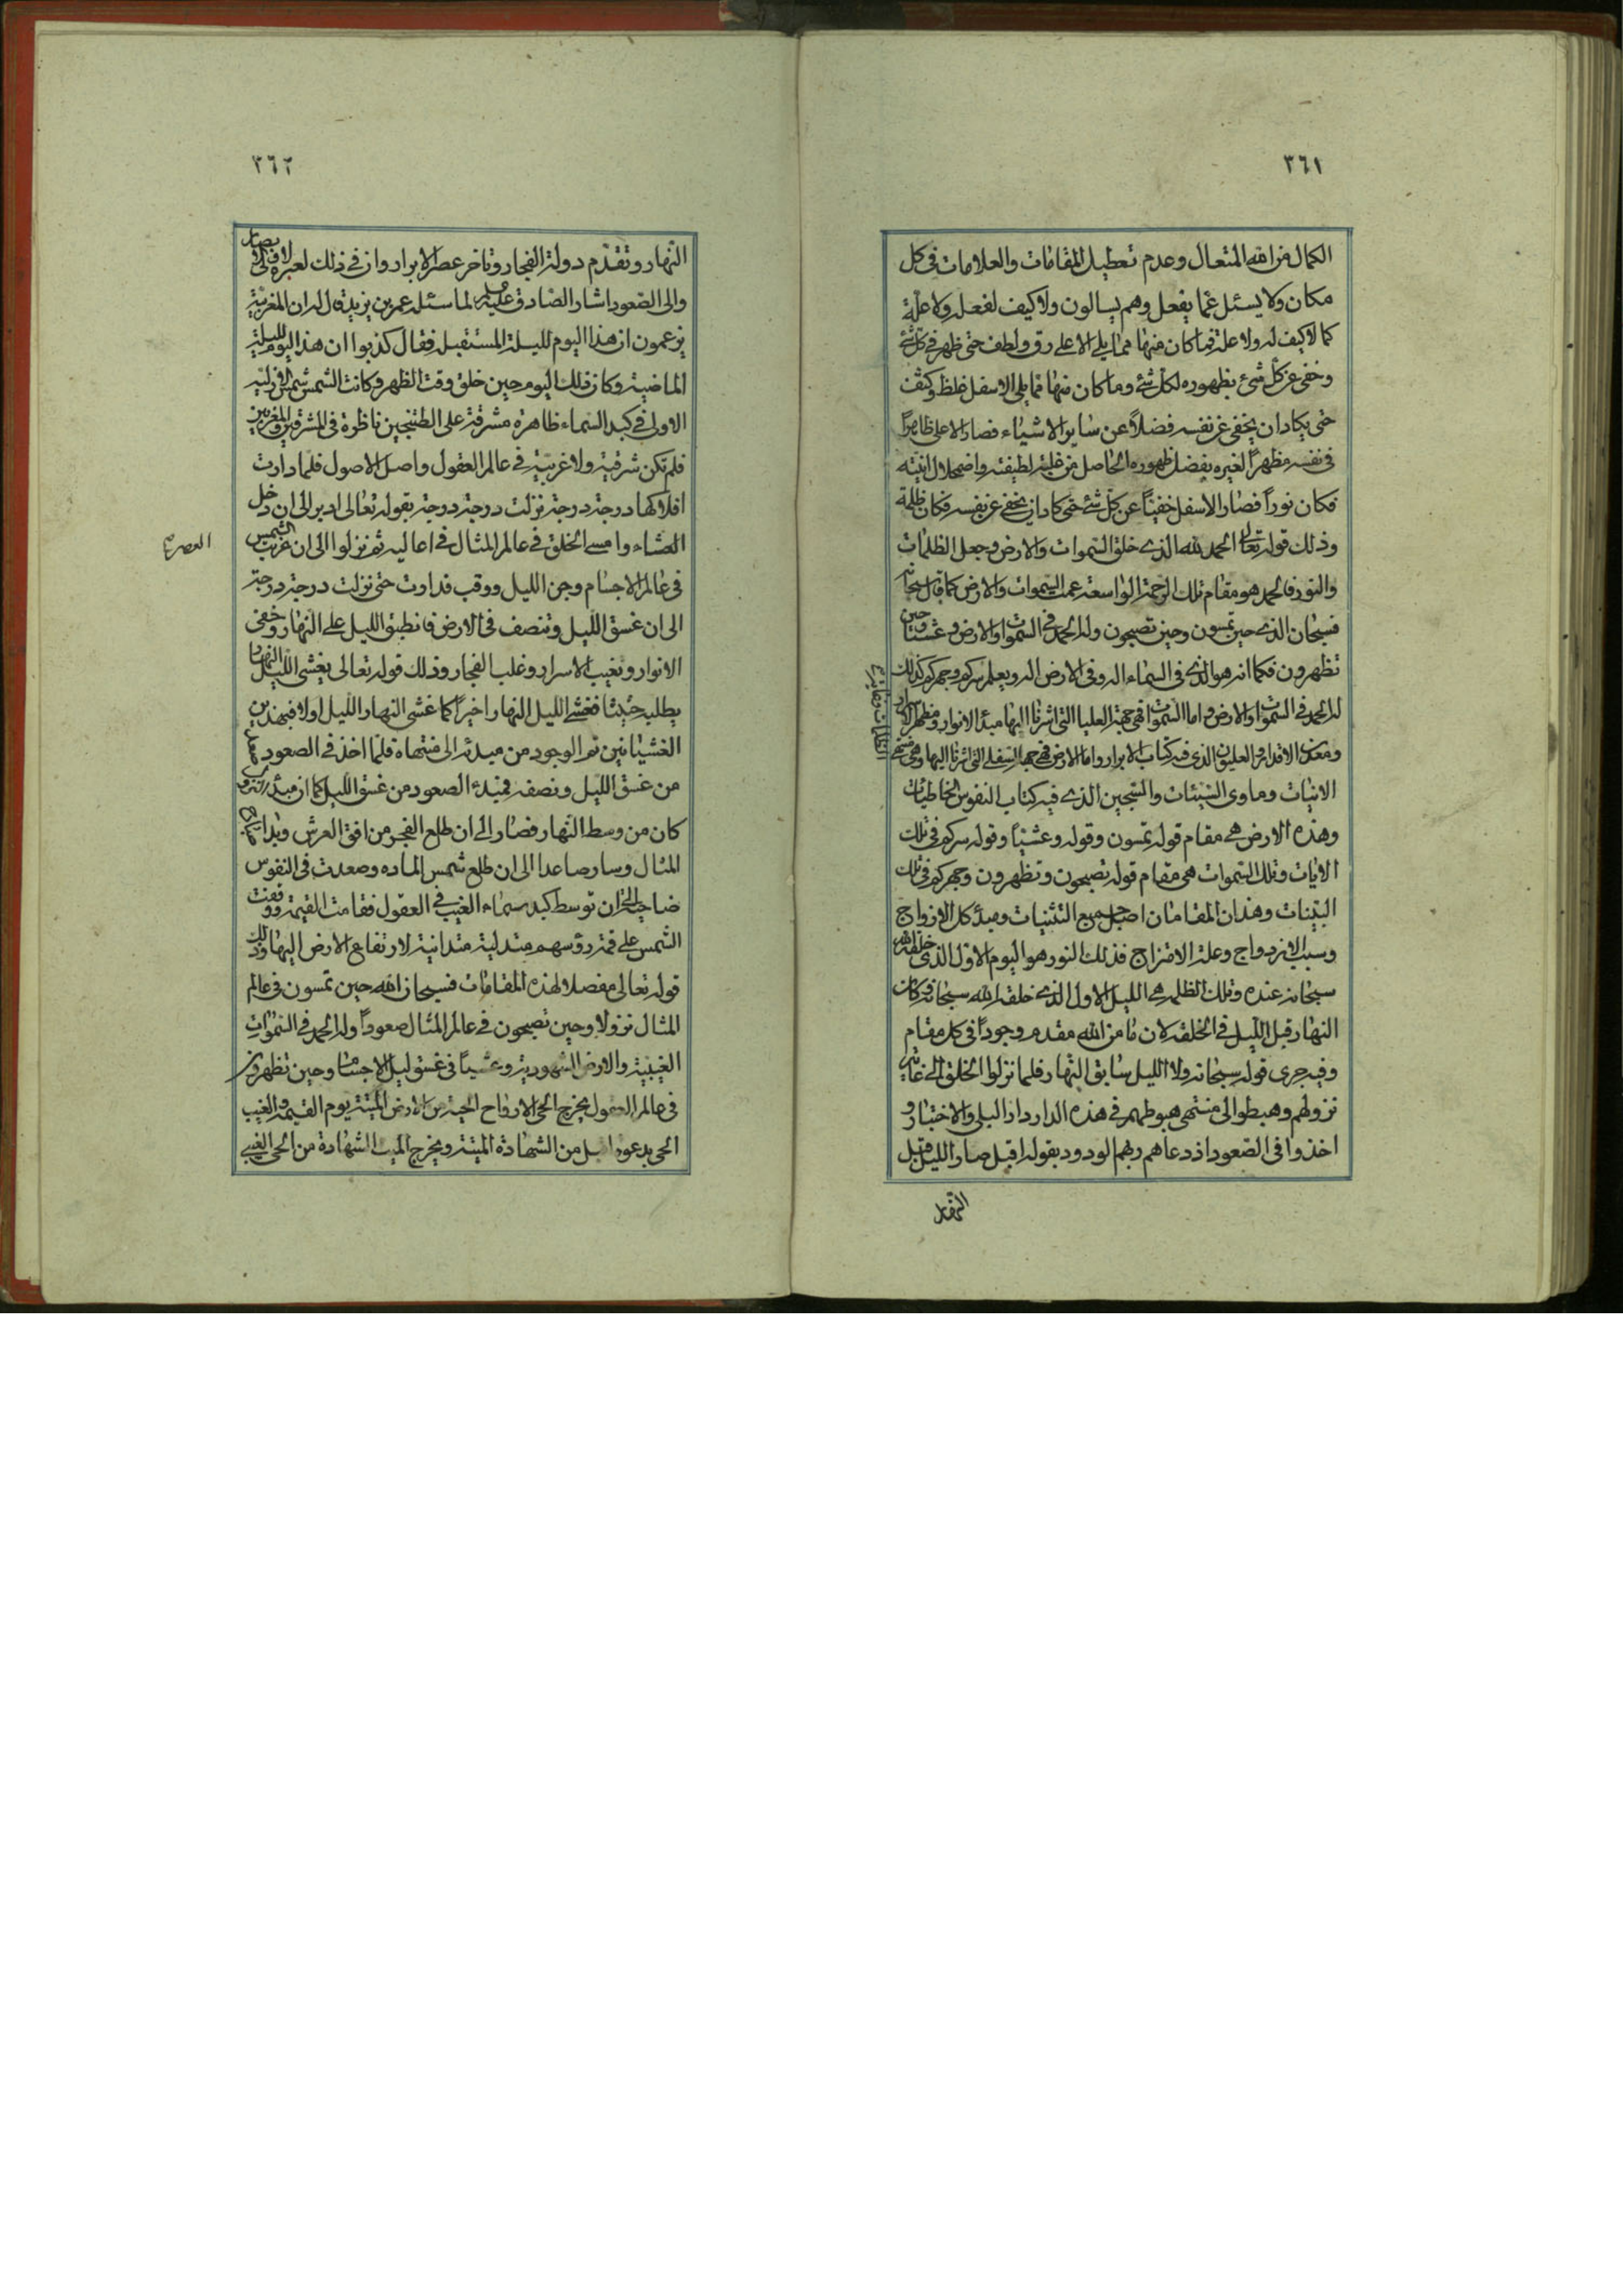 ٣٦١
الكمال من الله المتعال وعدم تعطيل المقامات والعلامات فى كل
مكان ولا يسئل عما يفعل وهم يسالون ولا كيف لفعله ولا علة
كما لا كيف له ولا علة فما كان منها مما يلى الاعلى رق ولطف حتى ظهر فى كل شئ
وخفى عن كل شئ بظهوره لكل شئ وما كان منها مما يلى الاسفل غلظ وكثف
حتى يكاد ان يخفى عن نفسه فضلاً عن ساير الاشياء فصار الاعلى ظاهراً
فى نفسه مظهراً لغيره بفضل ظهوره الحاصل من غلبة لطيفته واضمحلال انيته
فكان نوراً فصار الاسفل خفيّاً عن كل شئ حتى كاد ان يخفى عن نفسه فكان ظلمة
وذلك قوله تعالى الحمد لله الذى خلق السموات والارض وجعل الظلمات
والنور فالحمد هو مقام تلك الرحمة الواسعة عمت السموات والارض كما قال سبحانه
فسبحان الذى حين تمسون وحين تصبحون وله الحمد فى السموات والارض وعشيا وحين
تظهرون فكما انه هو الذى فى السماء اله وفى الارض اله ويعلم سركم وجهركم كذلك
له الحمد فى السموات والارض واما السموات فهى جهة العليا التى اشرنا اليها مبدأ الانوار ومظهر الاسرار
ومعدن الاقدار والعليون الذى فيه كتاب الابرار واما الارض فهى جهة السفلى التى اشرنا اليها وهى منتهى
الانيات وماوى السيئات والسجين الذى فيه كتاب النفوس الخاطيات
وهذه الارض هى مقام قوله تمسون وقوله وعشيّاً وقوله سركم فى تلك
الايات وتلك السموات هى مقام قوله تصبحون وتظهرون وجهركم فى تلك
البينات وهذان المقامان اصل جميع التثنيات ومبدأ كل الازواج
وسبب الازدواج وعلة الامتزاج فذلك النور هو اليوم الاول الذى خلقه الله
سبحانه عنده وتلك الظلمة هى الليل الاول الذى خلقه الله سبحانه فكان
النهار قبل الليل فى الخلقة لان ما من الله مقدم وجوداً فى كل مقام
وفيه جرى قوله سبحانه ولا الليل سابق النهار فلما نزلوا الخلق الى غاية
نزولهم وهبطوا الى منتهى هبوطهم فى هذه الدار دار البلى والاختبار و
اخذوا فى الصعود اذ دعاهم ربهم الودود بقوله اقبل صار الليل قبل
٣٦٢
النهار وتقدم دولة الفجار وتاخر عصر الابرار وان فى ذلك لعبرة لاولى الابصار
والى الصعود اشار الصادق عليه السلم لما سئله عمر بن يزيد قال له ان المغيرية
يزعمون ان هذا اليوم لليلة المستقبله فقال كذبوا ان هذا اليوم لليلة
الماضية وكان ذلك اليوم حين خلق وقت الظهر وكانت الشمس شمس الازلية
الاولى فى كبد السماء ظاهرة مشرقة على الطتنجين ناظرة فى المشرقين والمغربين
فلم تكن شرقية ولا غربية فى عالم العقول واصل الاصول فلما دارت
افلاكها درجة درجة نزلت درجة درجة بقوله تعالى ادبر الى ان دخل
العشاء وامسى الخلق فى عالم المثال فى اعاليه ثم نزلوا الى ان غربت الشمس
العصر
فى عالم الاجسام وجن الليل ووقب فدارت حتى نزلت درجة درجة
الى ان غسق الليل وتنصف فى الارض فانطبق الليل على النهار وخفى
الانوار وتغيب الاسرار وغلب الفجار وذلك قوله تعالى يغشى الليل النهار
يطلبه حثيثا فغشى الليل النهار اخيراً كما غشى النهار الليل اولا فبهذين
الغشيانين تم الوجود من مبدئه الى منتهاه فلما اخذ فى الصعود
من غسق الليل ونصفه فمبدء الصعود من غسق الليل كما ان مبدأ النزول
كان من وسط النهار فصار الى ان طلع الفجر من افق العرش وبدا
المثال وسار صاعدا الى ان طلع شمس الماده وصعدت فى النفوس
ضاحية الى ان توسط كبد سماء الغيب فى العقول فقامت القيمة ووقفت
الشمس على قمة رؤسهم متدلية متدانية لارتفاع الارض اليها وذلك
قوله تعالى مفصلا لهذه المقامات فسبحان الله حين تمسون فى عالم
المثال نزولا وحين تصبحون فى عالم المثال صعوداً وله الحمد فى السموات
الغيبية والارض الشهودية وعشياً فى غسق ليل الاجسام وحين تظهرون
فى عالم العقول يخرج الحى الارواح الحية من الارض الميتة يوم القيمة والغيب
الحى بدعوة اقبل من الشهادة الميتة ويخرج الميت الشهادة من الحى الغيبى